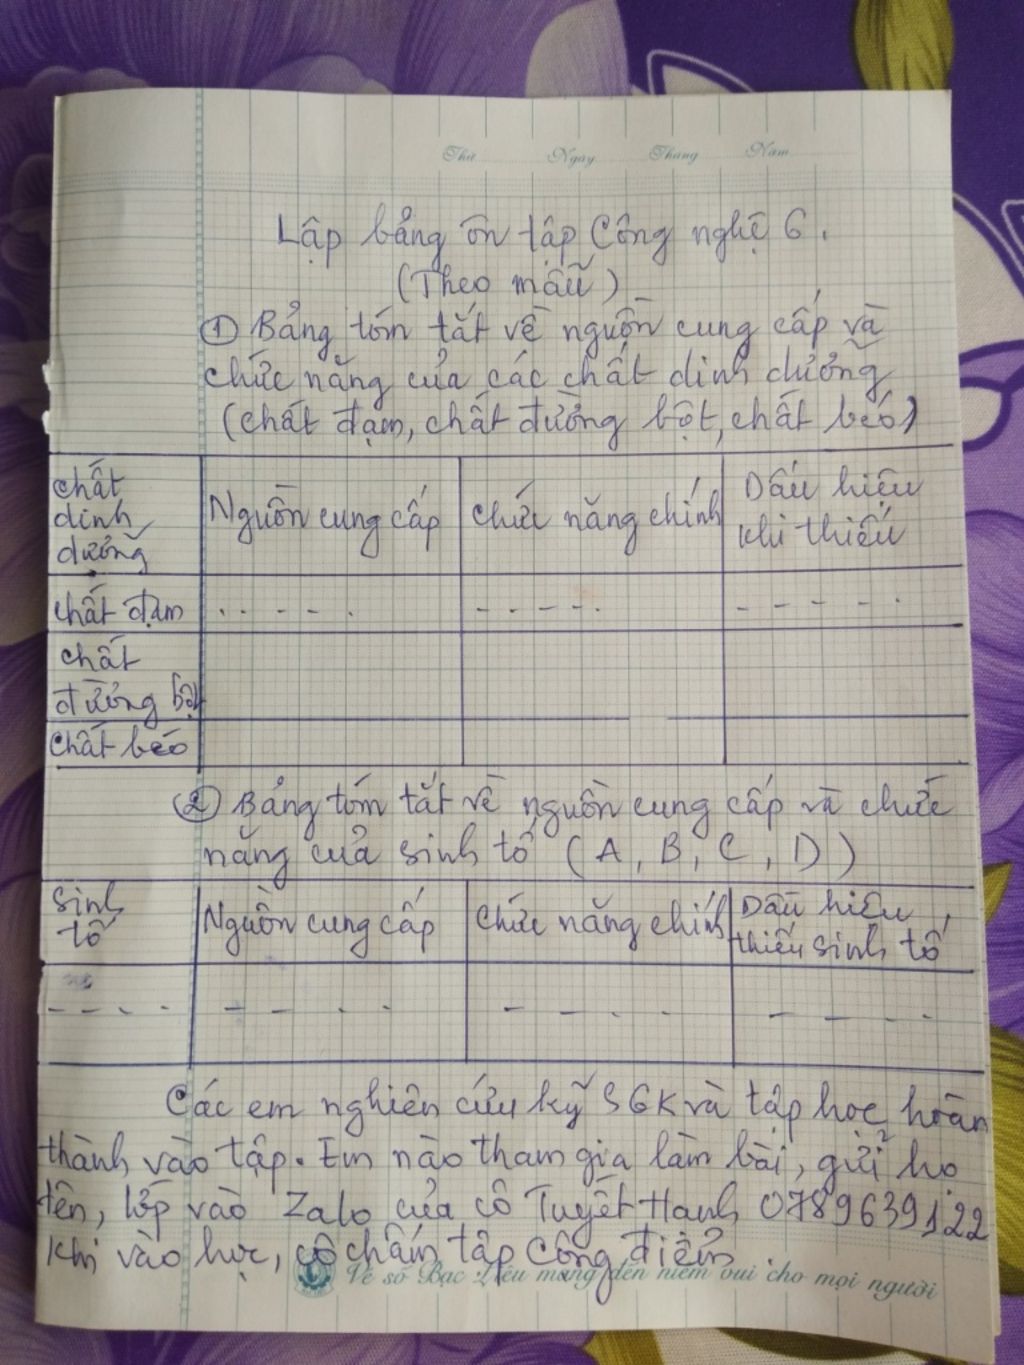 Thứ Ngày Tháng Năm
Lập bảng ôn tập Công nghệ 6.
(Theo mẫu)
① Bảng tóm tắt về nguồn cung cấp và
chức năng của các chất dinh dưỡng
(chất đạm, chất đường bột, chất béo)
chất dinh dưỡng | Nguồn cung cấp | chức năng chính | Dấu hiệu khi thiếu
chất đạm
chất đường bột
chất béo
② Bảng tóm tắt về nguồn cung cấp và chức
năng của sinh tố (A, B, C, D)
sinh tố | Nguồn cung cấp | chức năng chính | Dấu hiệu thiếu sinh tố
Các em nghiên cứu kỹ SGK và tập học hoàn
thành vào tập. Em nào tham gia làm bài, gửi họ
tên, lớp vào Zalo của cô Tuyết Hạnh 0789639122
khi vào học, cô chấm tập cộng điểm.
Vé số Bạc Liêu mang đến niềm vui cho mọi người